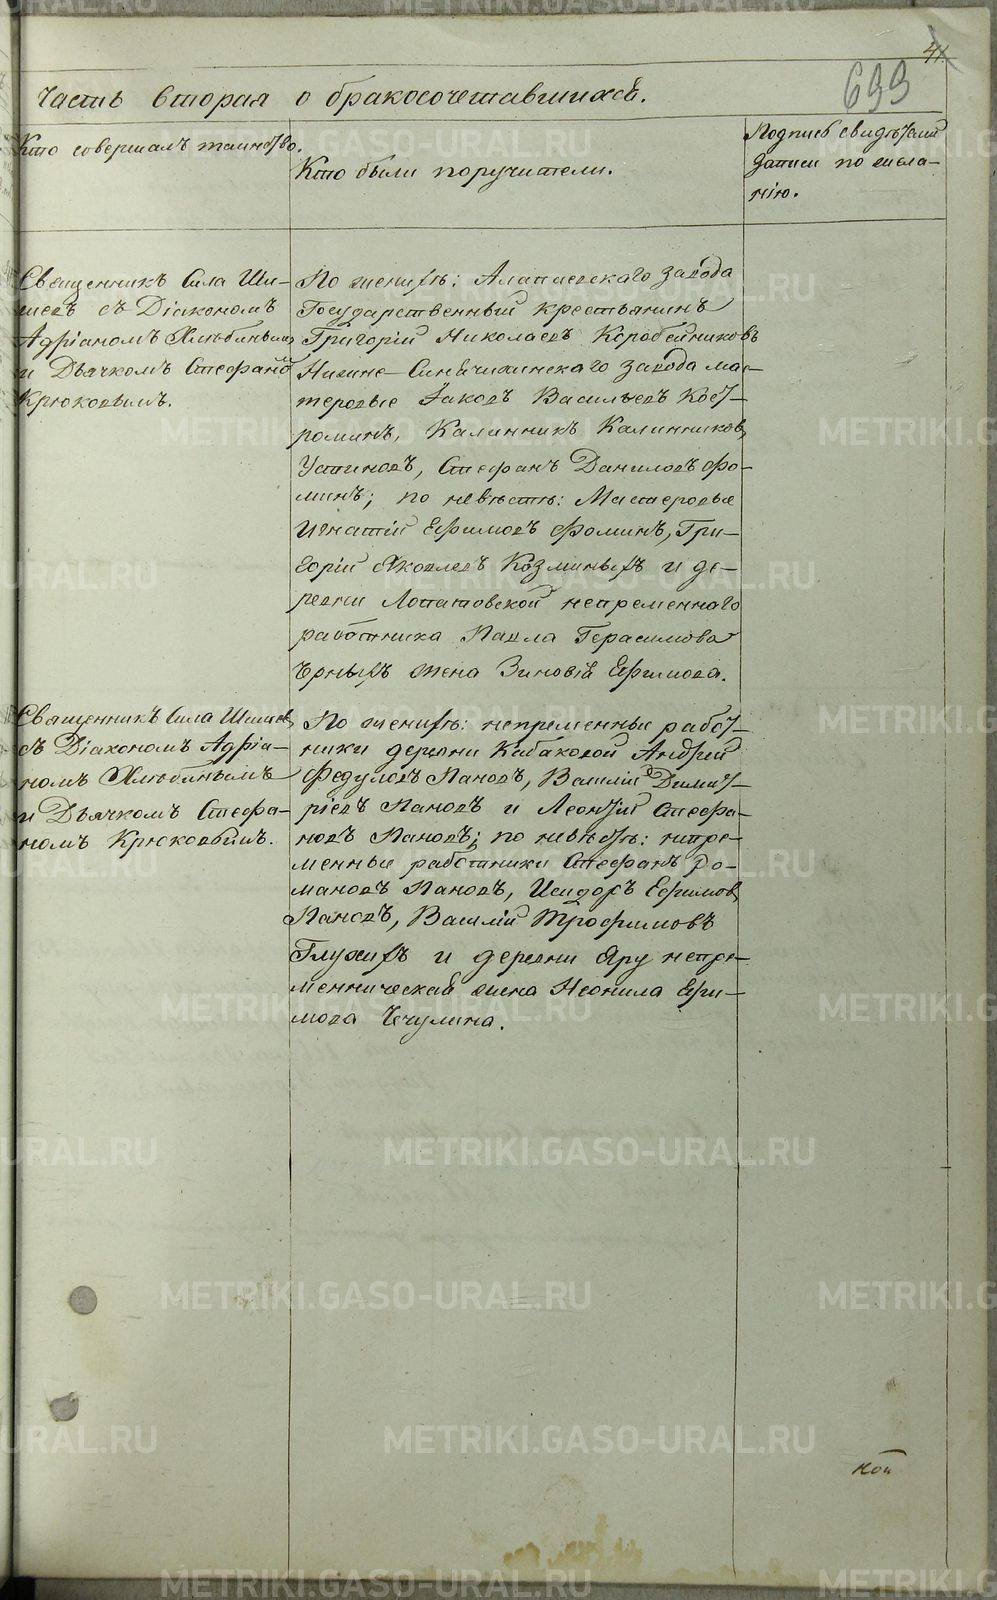 41.
699
Часть вторая о бракосочетавшихся.
Кто совершалъ таинство.
Кто были поручители.
Подпись свидѣтелей
записи по жела-
нію.
Священникъ Сила Ши-
шевъ съ Діакономъ
Адріаномъ Хлюбинымъ
и Дьячкомъ Стефаномъ
Крюковымъ.
По женихѣ: Алапаевскаго завода
Государственный крестьянинъ
Григорій Николаевъ Коробейниковъ
Нижне-Синячихинскаго завода мас-
теровые Іаковъ Васильевъ Кост-
роминъ, Калинникъ Калинниковъ
Устиновъ, Стефанъ Даниловъ Фо-
минъ; по невѣстѣ: Мастеровые
Игнатій Ефимовъ Фоминъ, Гри-
горій Яковлевъ Козминыхъ и де-
ревни Лопатовской непременнаго
работника Павла Герасимова
Черныхъ жена Зиновія Ефимова.
Священникъ Сила Шишевъ
съ Діакономъ Адріа-
номъ Хлюбинымъ
и Дьячкомъ Стефа-
номъ Крюковымъ.
По женихѣ: непременные работ-
ники деревни Кабаковой Андрей
Федуловъ Пановъ, Василій Димит-
ріевъ Пановъ и Леонтій Стефа-
новъ Пановъ; по невѣстѣ: непре-
менные работники Стефанъ Ро-
мановъ Пановъ, Исидоръ Ефимовъ
Пановъ, Василій Трофимовъ
Глухихъ и деревни Яру непре-
менническая жена Неонила Ефи-
мова Чечулина.
METRIKI.GASO-URAL.RU